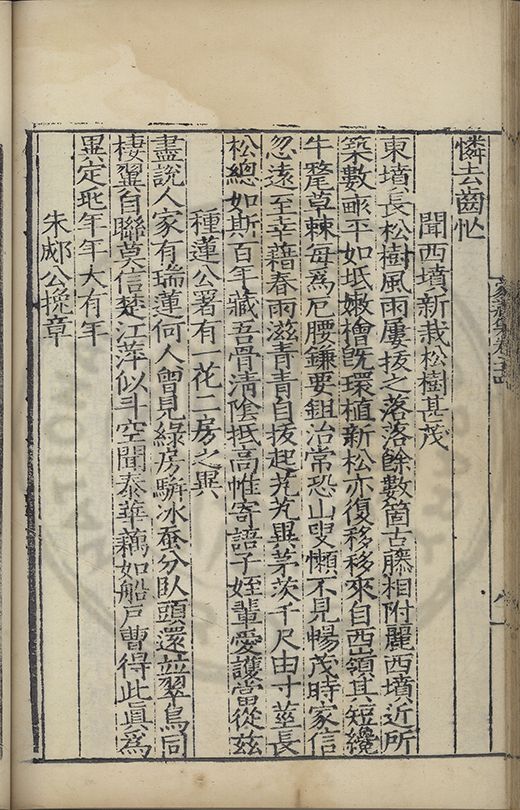 憐去齒忙
聞西墳新栽松樹甚茂
東墳長松樹風雨屢拔之落落餘數箇古藤相附麗西墳近所
築數畝平如坻嫩檜旣環植新松亦復移移來自西嶺其短纔
牛氂草棘每爲厄腰鎌要鉏治常恐山叟懶不見暢茂時家信
忽遠至幸藉春雨滋青青自拔起芃芃異茅茨千尺由寸莖長
松總如斯百年藏吾骨清陰抵高帷寄語子姪輩愛護當從茲
種蓮公署有一花二房之異
盡說人家有瑞蓮何人曾見綠房駢冰蚕分臥頭還並翠鳥同
棲翼自聯莫信楚江萍似斗空聞泰華藕如船戶曹得此眞爲
異定兆年年大有年
朱郕公輓章
家藏集卷
八